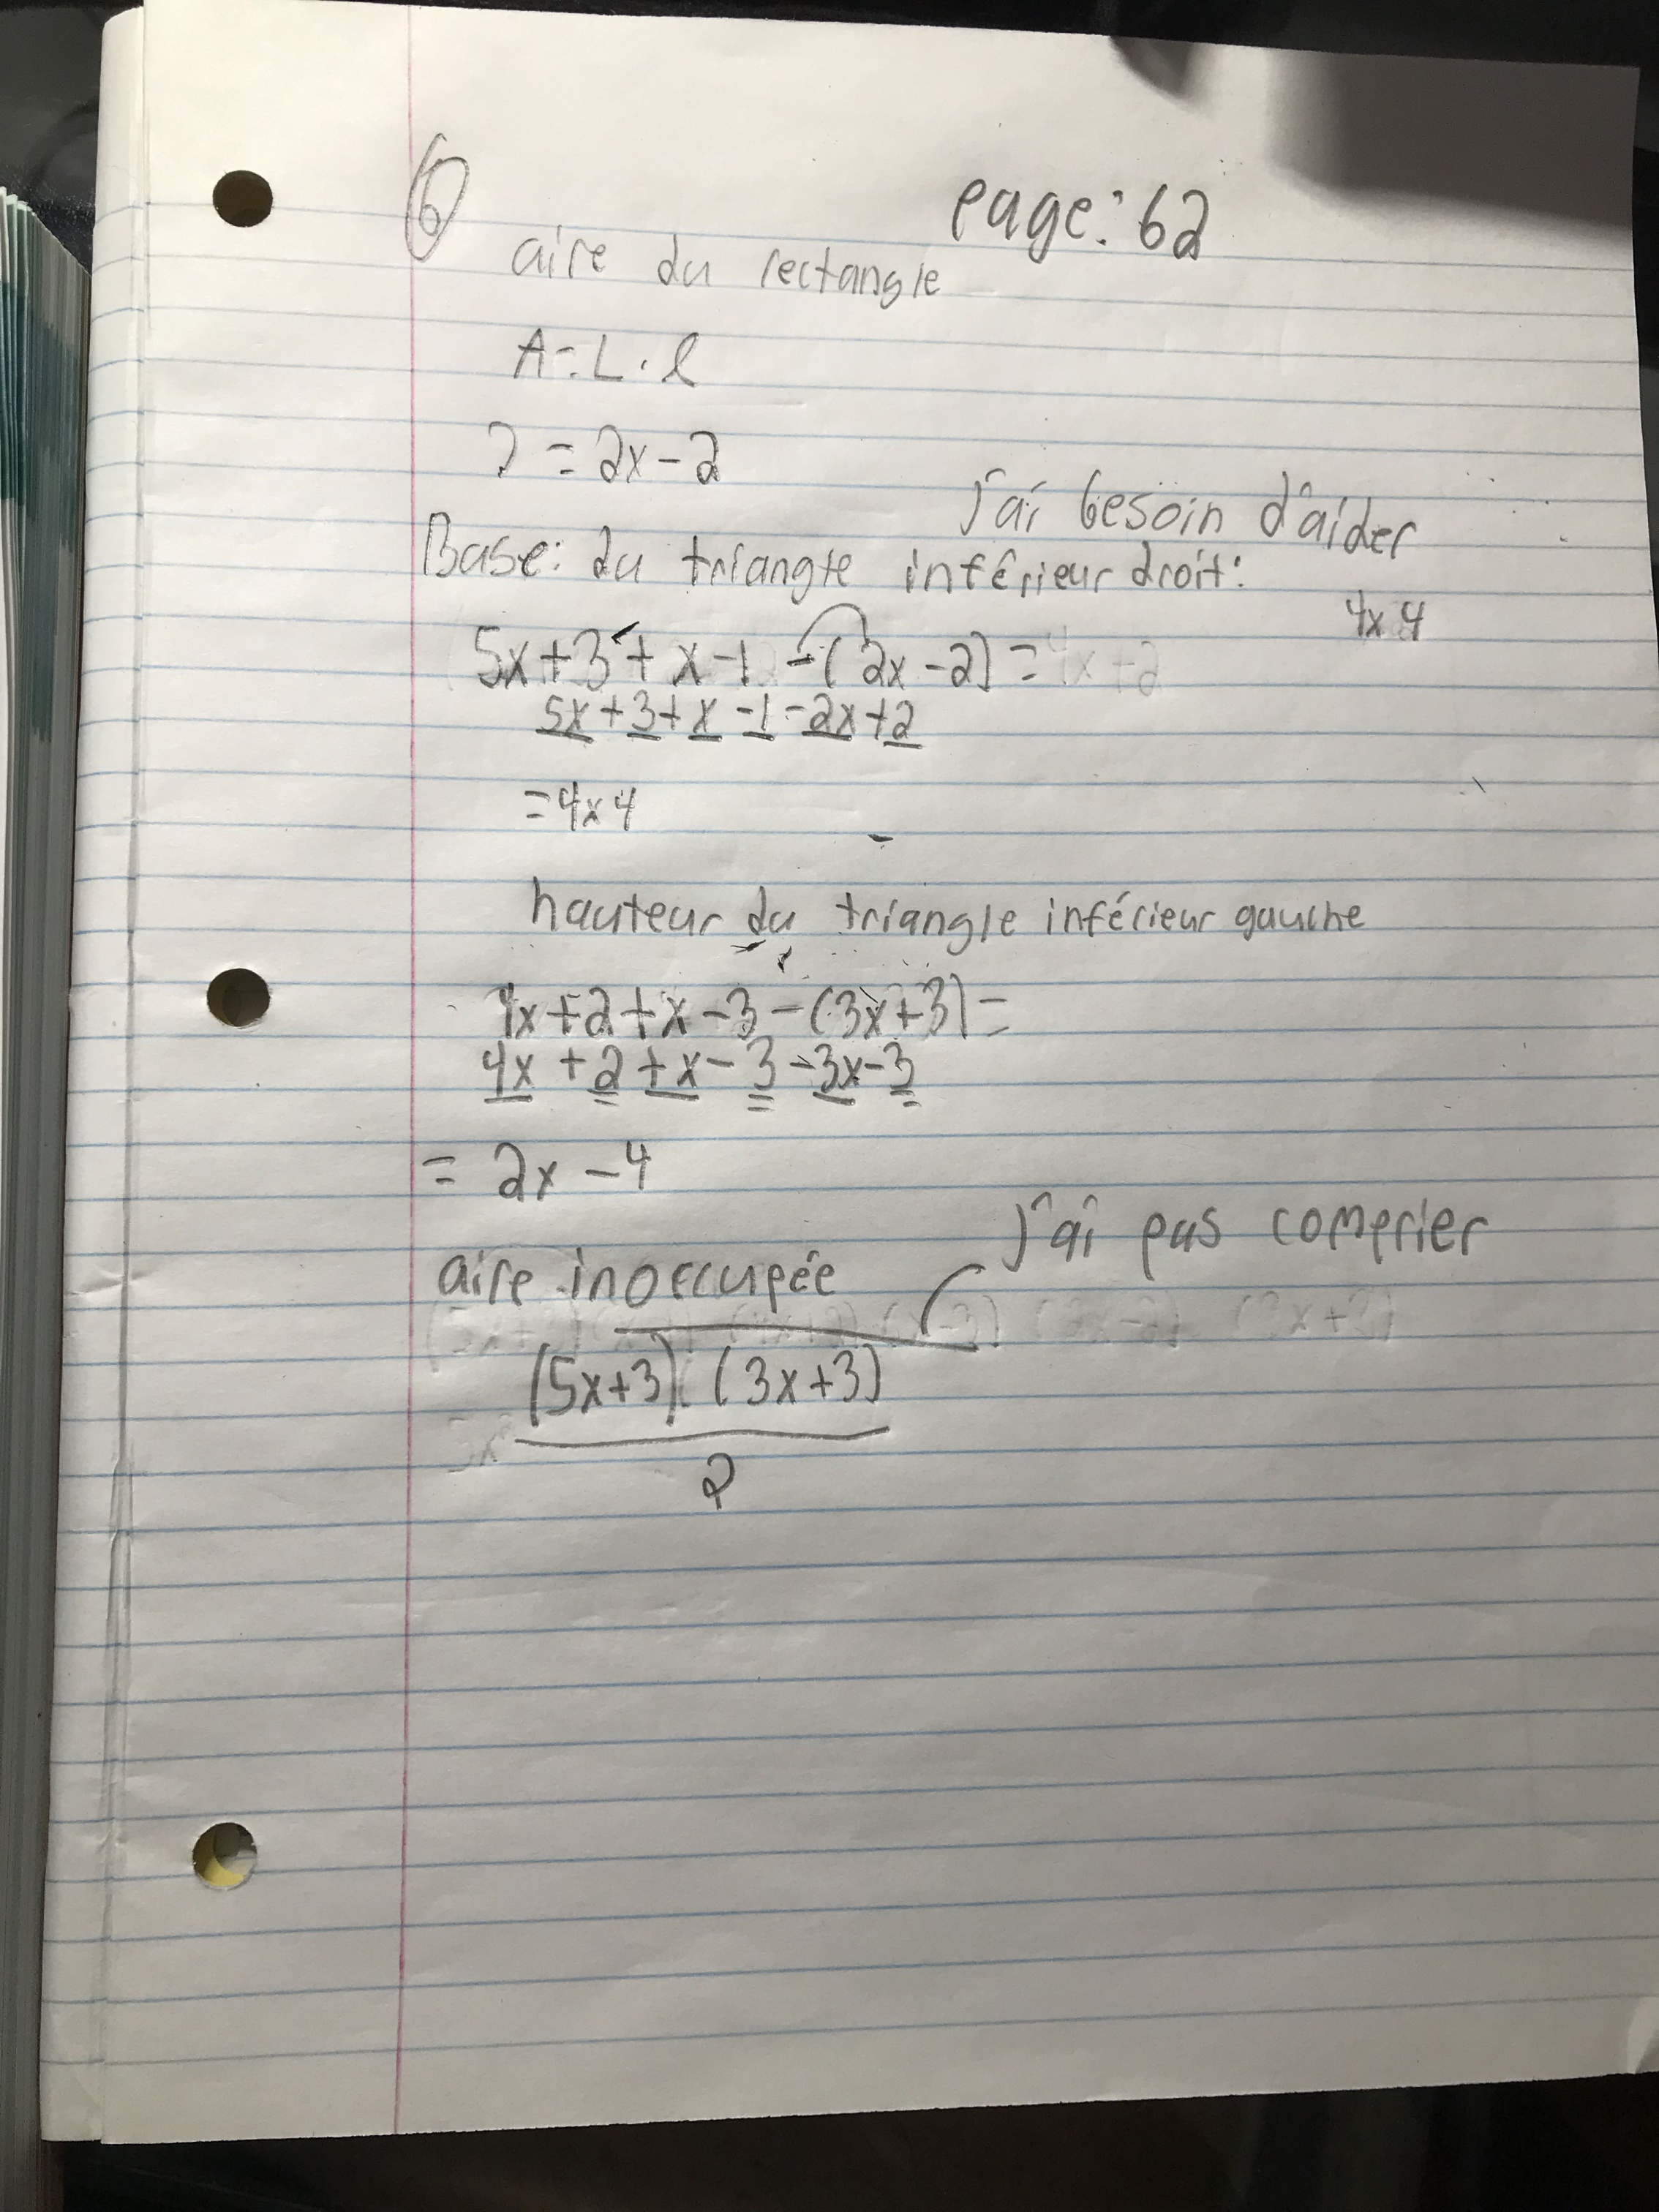 6
page: 62
aire du rectangle
A = L · l
2 = 2x - 2
j'ai besoin d'aider
Base: du triangle inférieur droit:
4x 4
5x + 3 + x - 1 - (2x - 2) = 4x + 2
5x + 3 + x - 1 - 2x + 2
= 4x 4
hauteur du triangle inférieur gauche
4x + 2 + x - 3 - (3x + 3) =
4x + 2 + x - 3 - 3x - 3
= 2x - 4
j'ai pas comprier
aire inoccupée
(3x + 3)
(5x + 3) · (3x + 3)
2